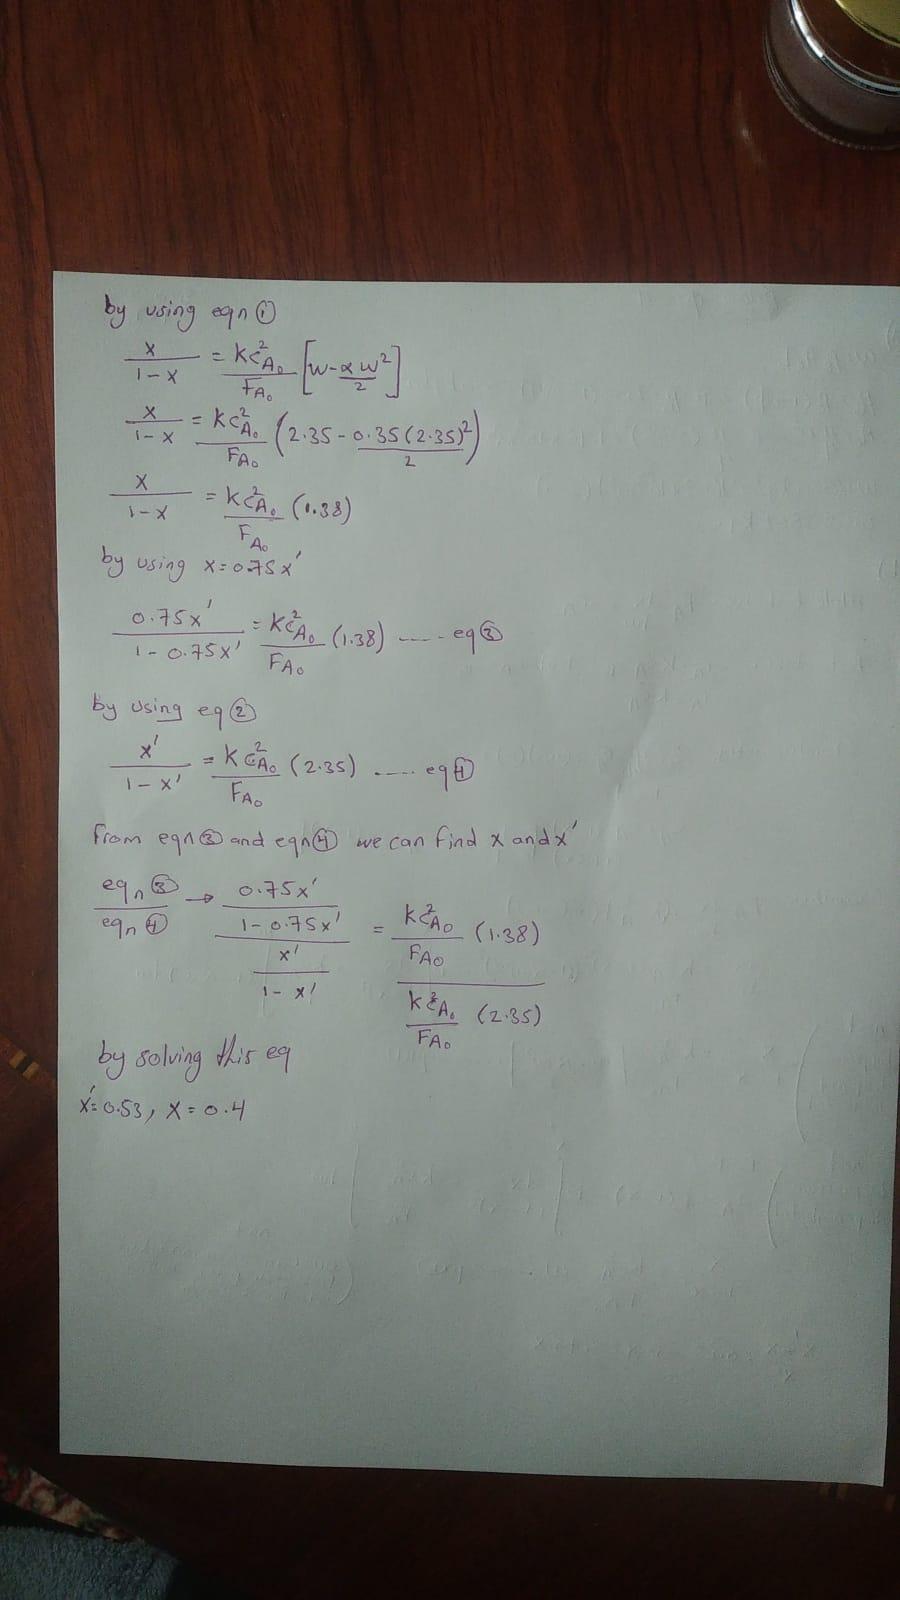 by using eqn ①
x / 1 - x = KC²A₀ / FA₀ [w - αw² / 2]
x / 1 - x = KC²A₀ / FA₀ (2.35 - 0.35(2.35)² / 2)
x / 1 - x = KC²A₀ / FA₀ (1.38)
by using x = 0.75x'
0.75x' / 1 - 0.75x' = KC²A₀ / FA₀ (1.38) ---- eq ③
by using eq ②
x' / 1 - x' = KC²A₀ / FA₀ (2.35) ---- eq ④
from eqn ③ and eqn ④ we can find x and x'
eqn ③ / eqn ④ → (0.75x' / 1 - 0.75x') / (x' / 1 - x') = (KC²A₀ / FA₀ (1.38)) / (KC²A₀ / FA₀ (2.35))
by solving this eq
x' = 0.53, x = 0.4